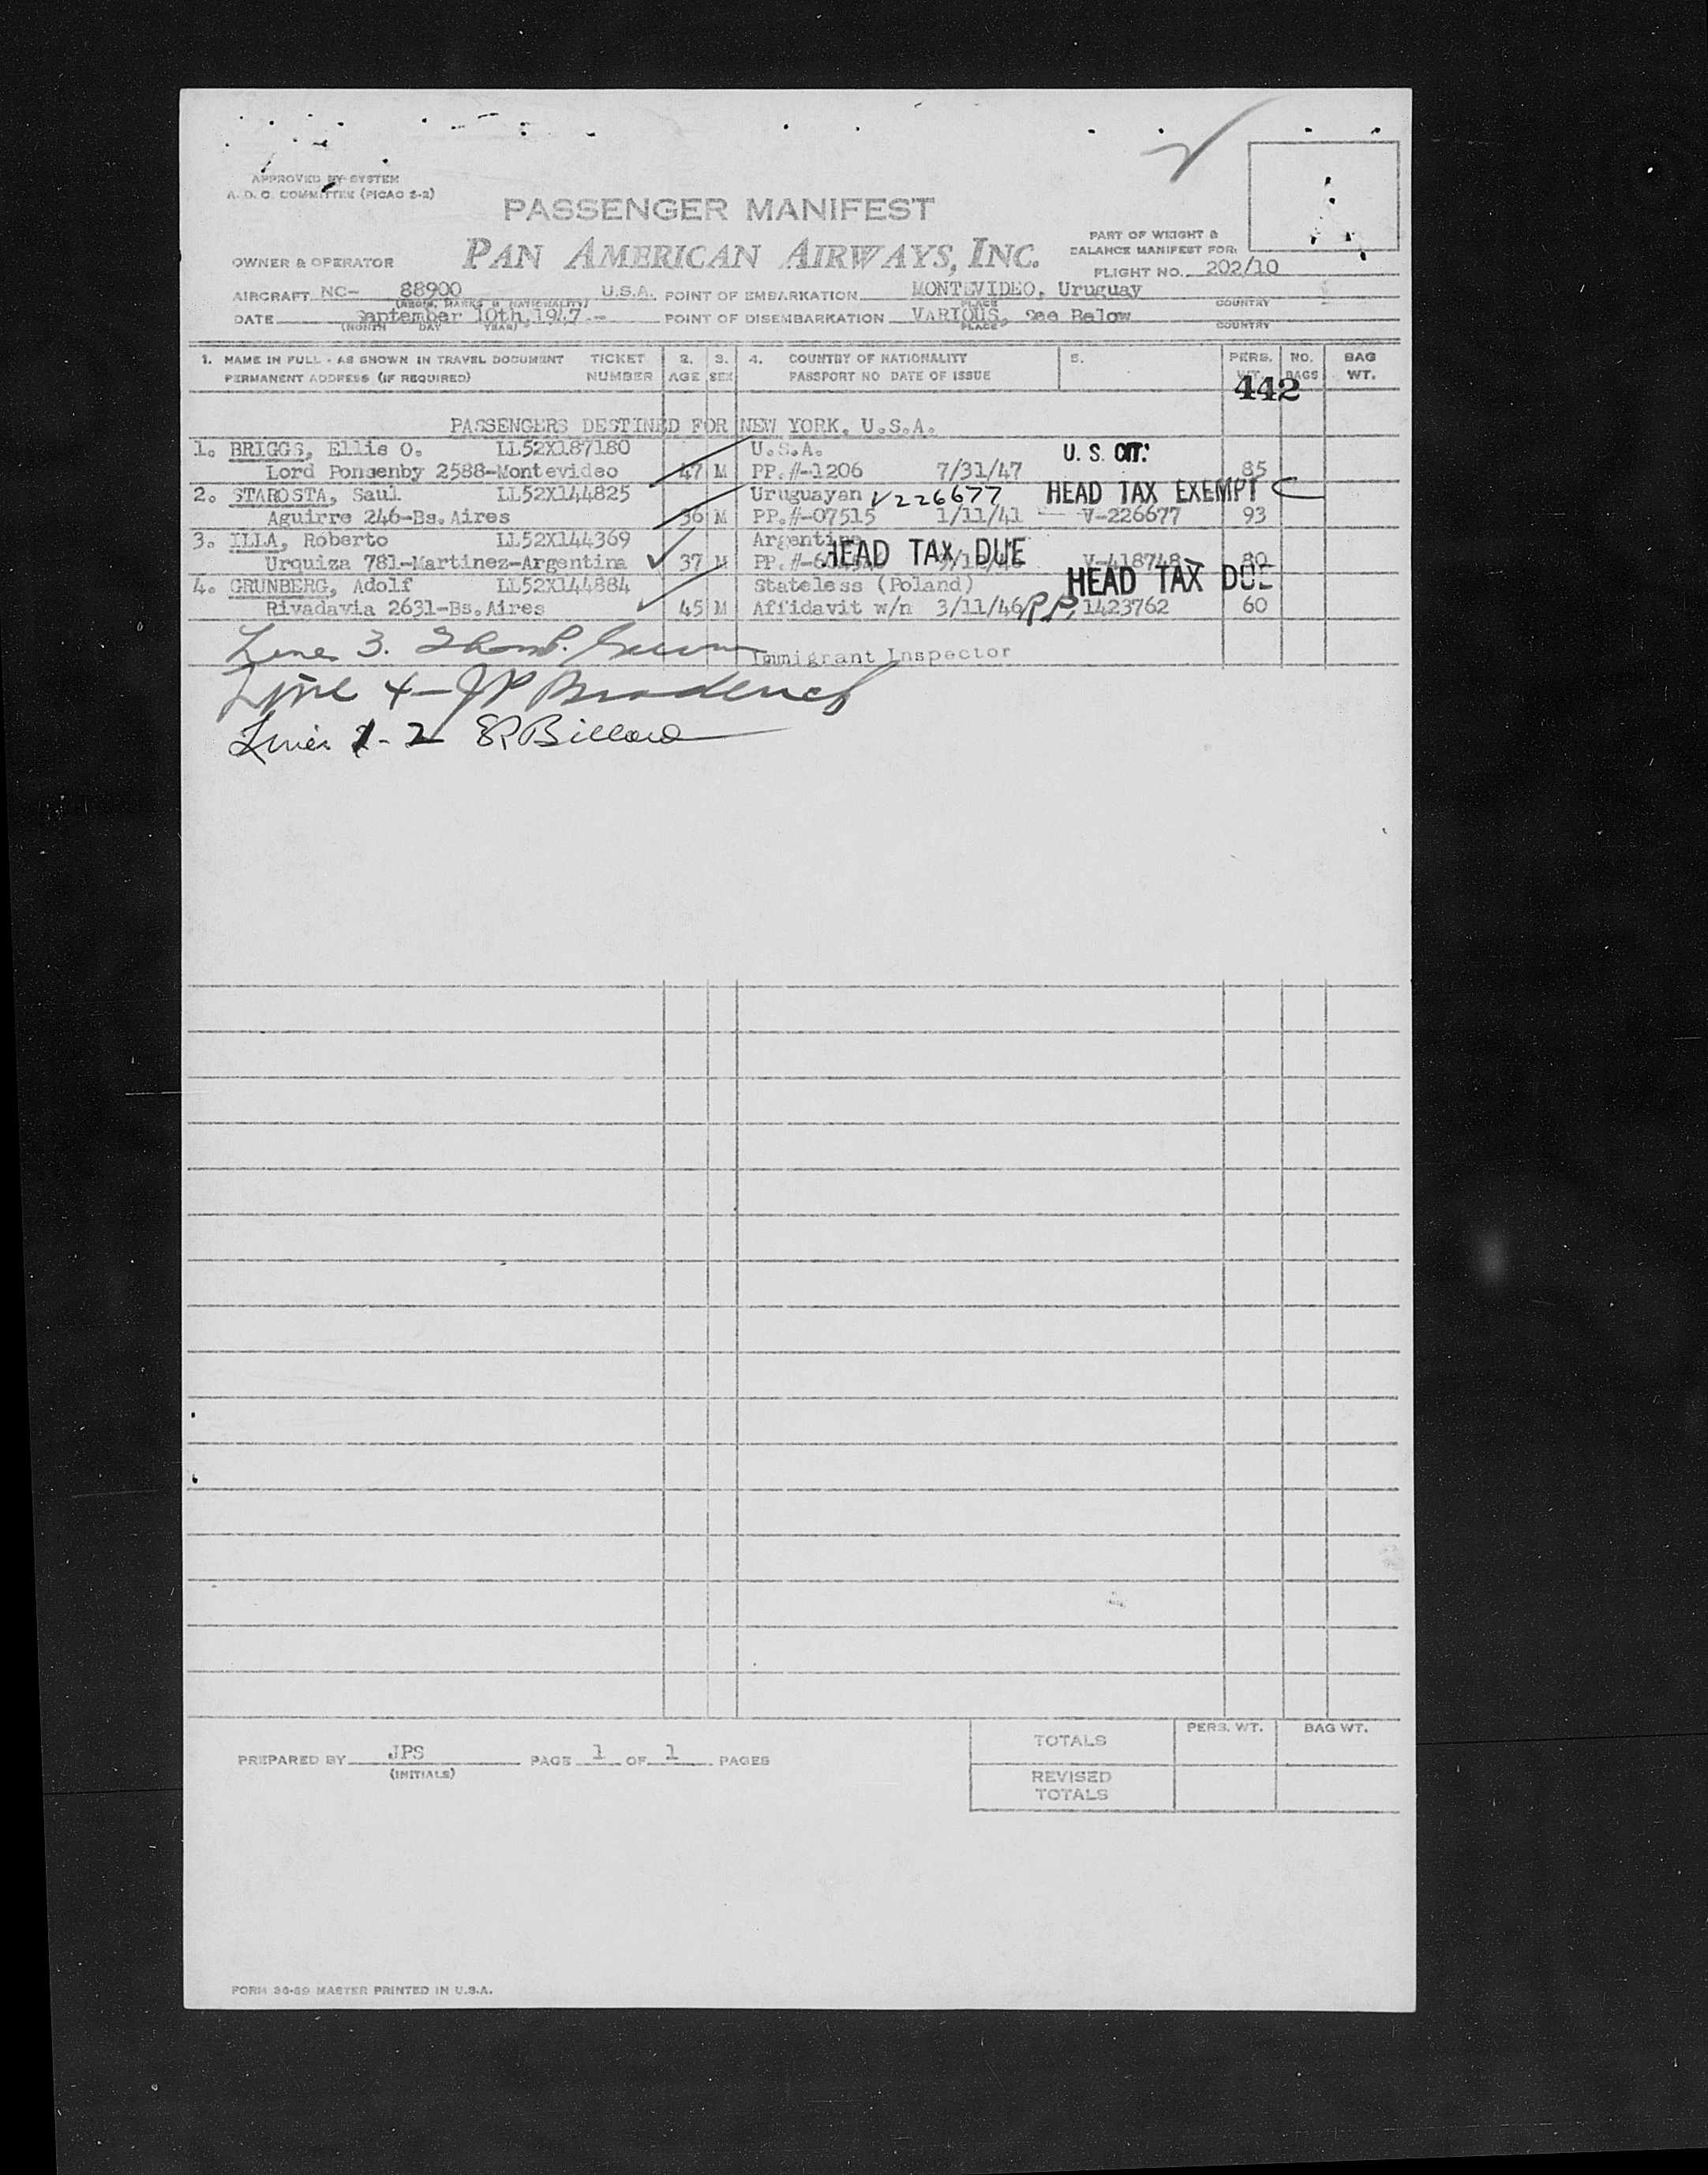 APPROVED BY SYSTEM
A. D. C. COMMITTEE (PICAO 2-2)
PASSENGER MANIFEST
OWNER & OPERATOR PAN AMERICAN AIRWAYS, INC.
PART OF WEIGHT &
BALANCE MANIFEST FOR:
FLIGHT NO. 202/10
AIRCRAFT NC- 88900 U.S.A. POINT OF EMBARKATION MONTEVIDEO, Uruguay
(REGIS. MARKS & NATIONALITY) PLACE COUNTRY
DATE September 10th,1947.- POINT OF DISEMBARKATION VARIOUS, See Below
(MONTH DAY YEAR) PLACE COUNTRY
1. NAME IN FULL - AS SHOWN IN TRAVEL DOCUMENT TICKET 2. 3. 4. COUNTRY OF NATIONALITY 5. PERS. NO. BAG
PERMANENT ADDRESS (IF REQUIRED) NUMBER AGE SEX PASSPORT NO DATE OF ISSUE WT. BAGS WT.
442
PASSENGERS DESTINED FOR NEW YORK, U.S.A.
1. BRIGGS, Ellis O. LL52X187180 U.S.A. U. S. CIT.
Lord Ponsenby 2588-Montevideo 47 M PP.#-1206 7/31/47 85
2. STAROSTA, Saul LL52X144825 Uruguayan V226677 HEAD TAX EXEMPT
Aguirre 246-Bs.Aires 36 M PP.#-07515 1/11/41 V-226677 93
3. ILLA, Roberto LL52X144369 Argentine HEAD TAX DUE
Urquiza 781-Martinez-Argentina 37 M PP.#- V-418748 80
4. GRUNBERG, Adolf LL52X144884 Stateless (Poland) HEAD TAX DUE
Rivadavia 2631-Bs.Aires 45 M Affidavit w/n 3/11/46 R.P. 1423762 60
Line 3. Immigrant Inspector
Line 4- JP Broderick
Lines 1-2
PREPARED BY JPS PAGE 1 OF 1 PAGES
(INITIALS)
TOTALS PERS. WT. BAG WT.
REVISED
TOTALS
FORM 36-59 MASTER PRINTED IN U.S.A.